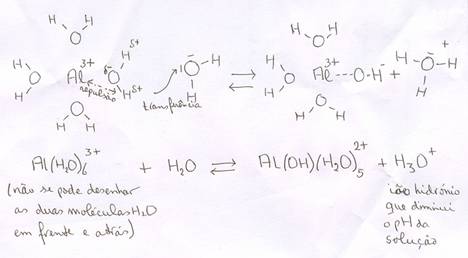 H H
O
H H
H O 3+ δ- H δ+
Al O
H repulsão H δ+
O
H H
transferência
H
O H
H
⇌
H H
O
H O 3+
Al --- O-H⁻
H
O
H H
+
H O H +
H
Al(H₂O)₆³⁺ + H₂O ⇌ Al(OH)(H₂O)₅²⁺ + H₃O⁺
(não se pode desenhar
as duas moléculas H₂O
em frente e atrás)
ião hidrónio
que diminui
o pH da
solução